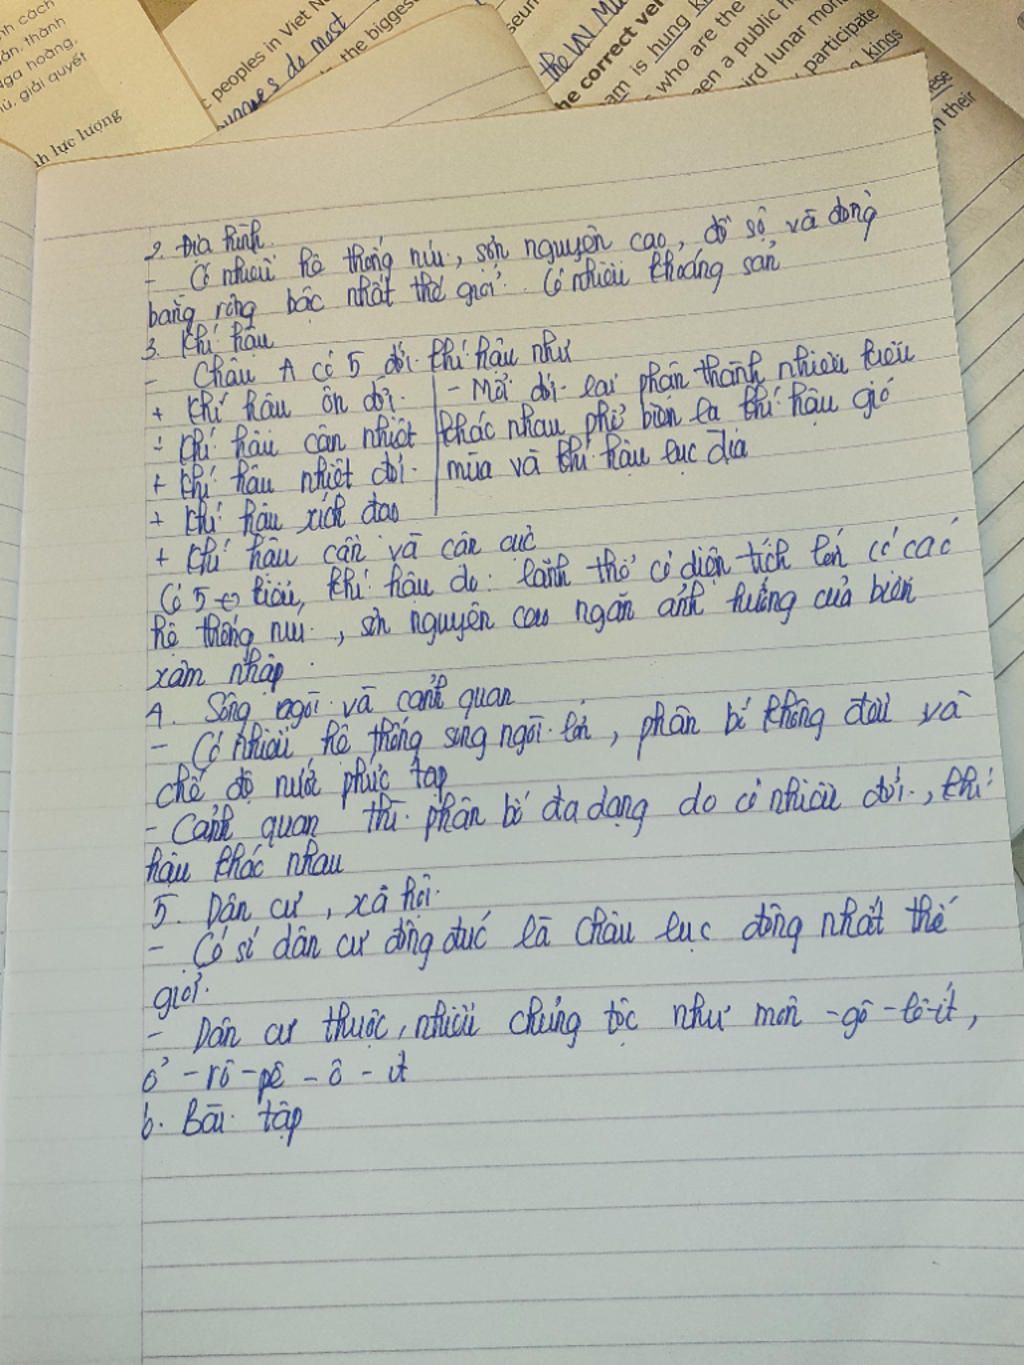 nh cách
án, thành
Nga hoàng,
ủ, giải quyết
nh lực lượng
c peoples in Viet N
do most
the biggest
seum
the VN Mu
he correct ver
am is hung k
who are the
en a public h
ird lunar mon
participate
kings
ese
n their
2. Địa hình
- Có nhiều hệ thống núi, sơn nguyên cao, đồ sộ và đồng
bằng rộng bậc nhất thế giới. Có nhiều khoáng sản
3. Khí hậu
- Châu Á có 5 đới khí hậu như
+ Khí hậu ôn đới.
+ Khí hậu cận nhiệt
+ Khí hậu nhiệt đới.
+ Khí hậu xích đạo
+ Khí hậu cận và cận cực
- Mỗi đới lại phân thành nhiều kiểu
khác nhau phổ biến là khí hậu gió
mùa và khí hậu lục địa
Có 5 kiểu, khí hậu do: lãnh thổ có diện tích lớn có các
hệ thống núi, sơn nguyên cao ngăn ảnh hưởng của biển
xâm nhập.
4. Sông ngòi và cảnh quan
- Có nhiều hệ thống sông ngòi lớn, phân bố không đều và
chế độ nước phức tạp
- Cảnh quan thì phân bố đa dạng do có nhiều đới, khí
hậu khác nhau
5. Dân cư, xã hội.
- Có số dân cư đông đúc là châu lục đông nhất thế
giới.
- Dân cư thuộc, nhiều chủng tộc như môn-gô-lô-ít,
ơ-rô-pê-ô-ít
6. Bài tập